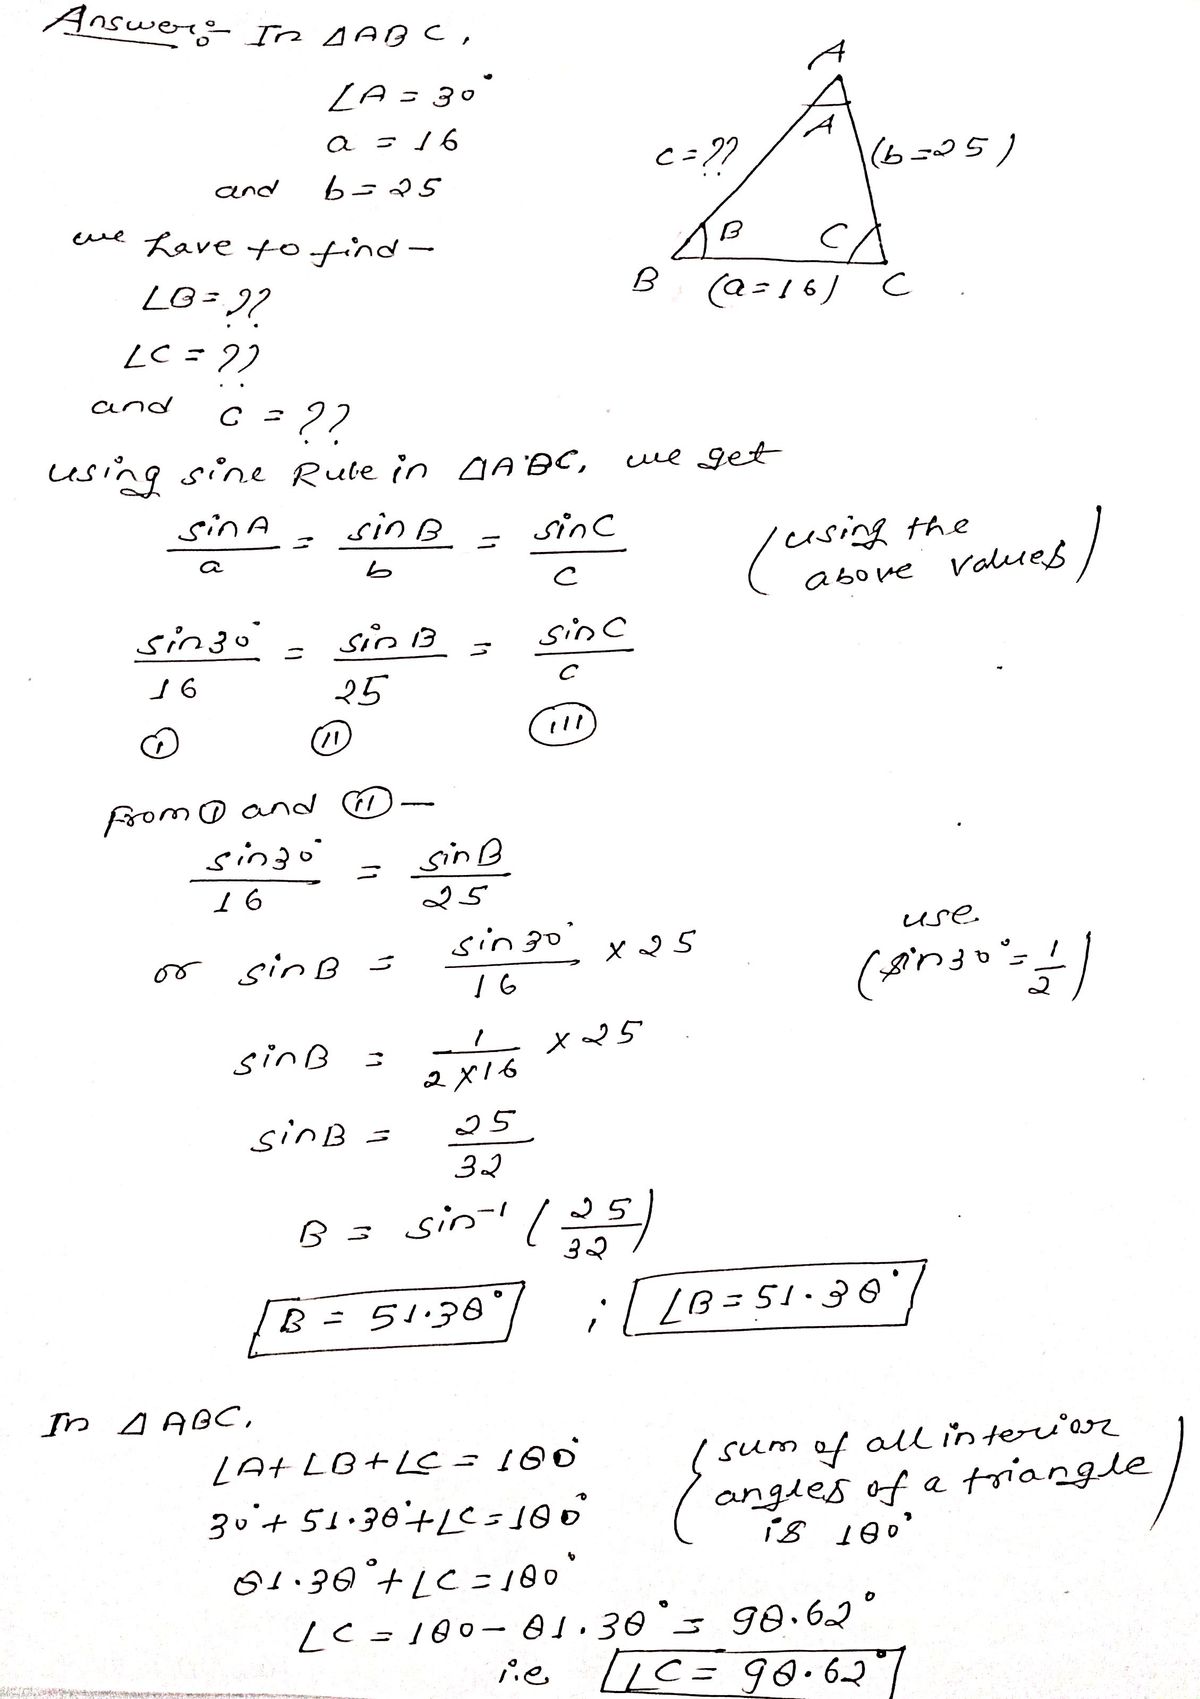 Answer:- In ΔABC,
∠A = 30°
a = 16
and b = 25
we have to find —
∠B = ??
∠C = ??
and c = ??
A
A
c = ??
(b = 25)
B
C
B
(a = 16)
C
using sine Rule in ΔABC, we get
sinA/a = sinB/b = sinC/c (using the above values)
sin30°/16 = sinB/25 = sinC/c
(i) (ii) (iii)
From (i) and (ii) —
sin30°/16 = sinB/25
or sinB = sin30°/16 × 25
use (sin30° = 1/2)
sinB = 1/(2×16) × 25
sinB = 25/32
B = sin⁻¹(25/32)
B = 51.38° ; ∠B = 51.38°
In ΔABC,
∠A + ∠B + ∠C = 180°
(sum of all interior
angles of a triangle
is 180°)
30° + 51.38° + ∠C = 180°
81.38° + ∠C = 180°
∠C = 180 - 81.38° = 98.62°
i.e ∠C = 98.62°